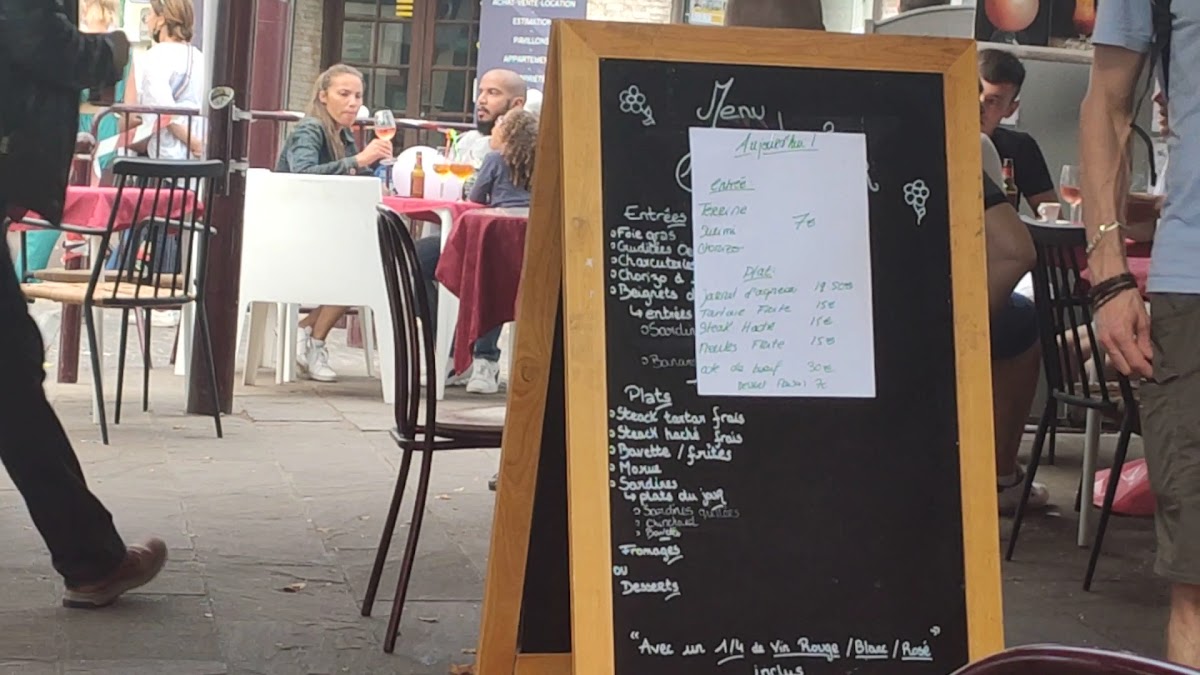 ACHAT-VENTE-LOCATION
ESTIMATION
PAVILLONS
APPARTEME
Menu
Aujourd'hui !
Entrée
Terrine
Surimi 7€
Chorizo
Plat:
d'agneau 19.50€
Tartare Frite 15€
Steak Haché 15€
Moules Frite 15€
cote de bœuf 30€
Dessert 7€
Entrées
Foie gras
Crudités
Charcuterie
Chorizo à
Beignets d
↳ entrées
Sardin
Banan
Plats
Steack tartar frais
Steack haché frais
Bavette / frites
Morue
Sardines
↳ plats du jour
Sardines grillées
Chinchard
Fromages
ou
Desserts
"Avec un 1/4 de Vin Rouge / Blanc / Rosé"
inclus